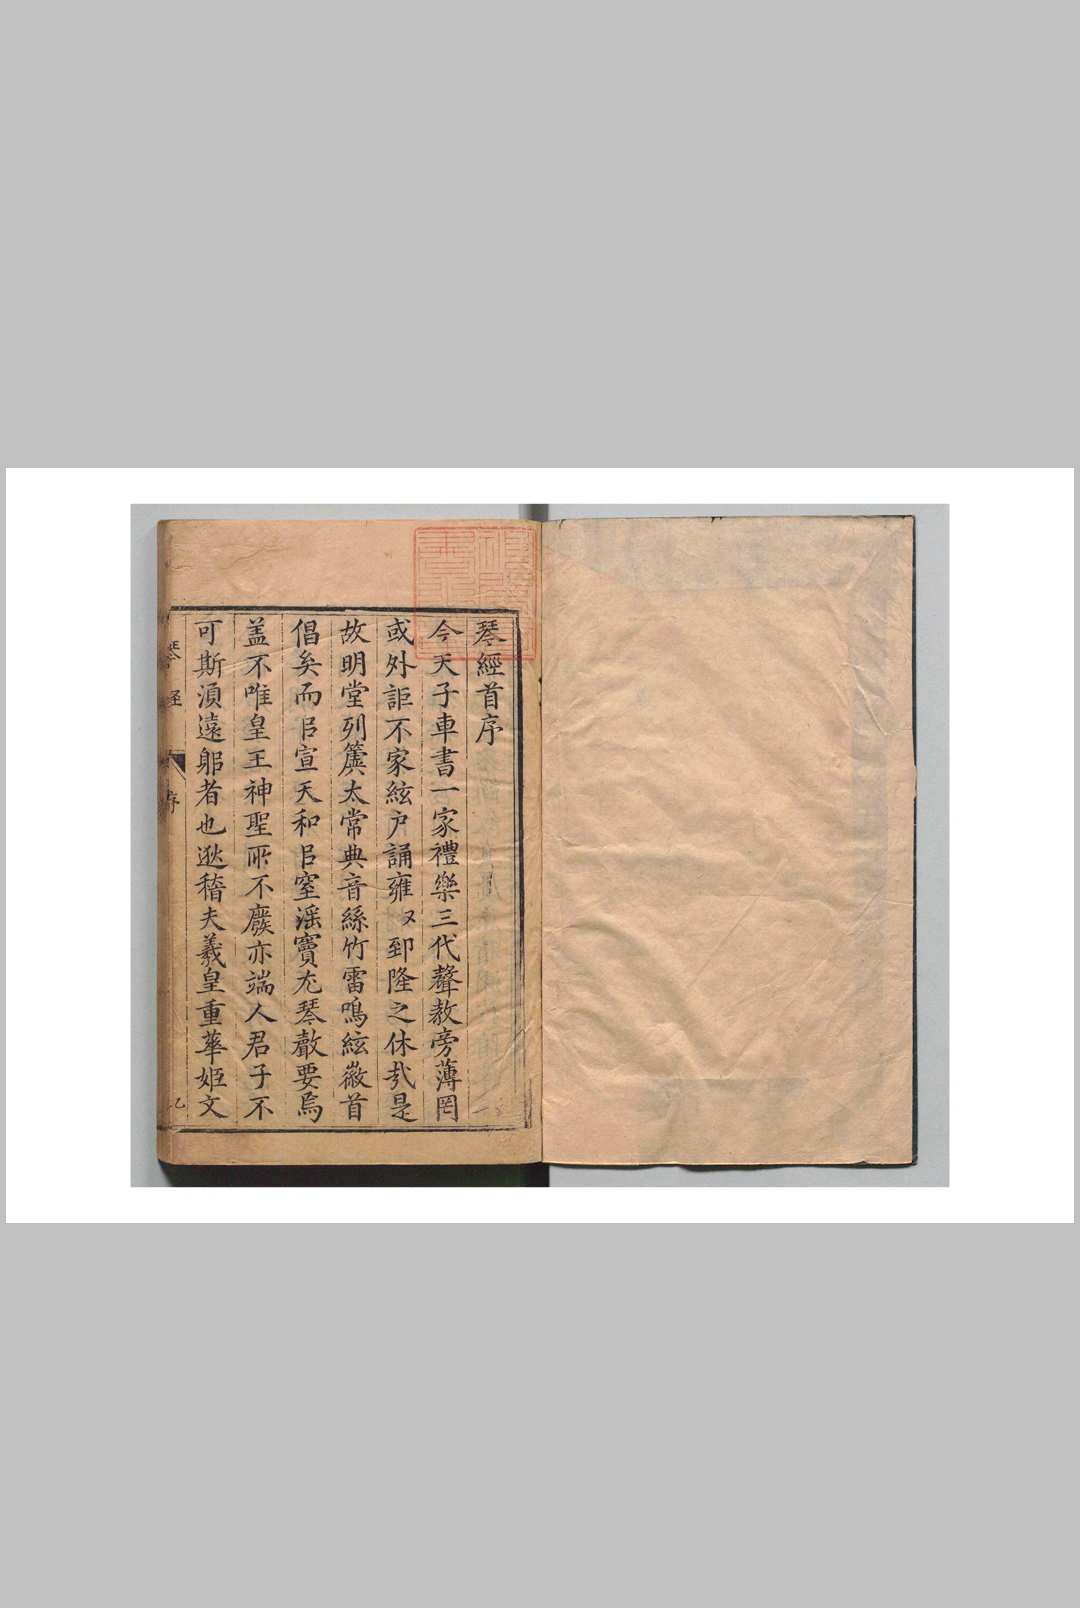 琴經首序
今天子車書一家禮樂三代聲教旁薄罔
或外詎不家絃户誦雍又郅隆之休㢤是
故明堂列簴太常典音絲竹雷鳴絃徽首
倡矣而㠯宣天和㠯窒滛竇尤琴𣪊要焉
盖不唯皇王神聖㪽不廢亦端人君子不
可斯湏遠躳者也逖稽夫羲皇重華姬文
琴經
序
乙